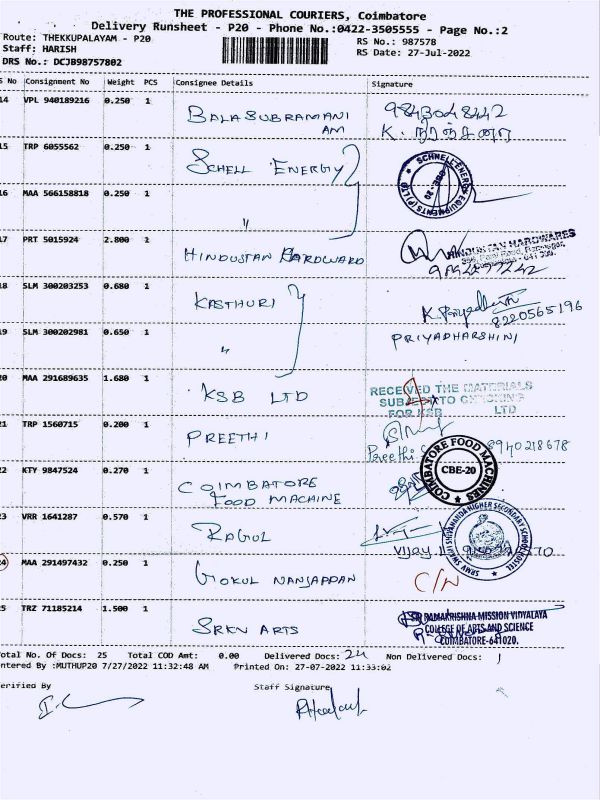 THE PROFESSIONAL COURIERS, Coimbatore
Delivery Runsheet - P20 - Phone No.:0422-3505555 - Page No.:2
Route: THEKKUPALAYAM - P20 RS No.: 987578
Staff: HARISH RS Date: 27-Jul-2022
DRS No.: DCJB98757802
S No Consignment No Weight PCS Consignee Details Signature
14 VPL 940189216 0.250 1 BALASUBRAMANI 9843048442
AM K.
15 TRP 6055562 0.250 1 SCHELL ENERGY SCHNELL ENERGY EQUIPMENTS (P) LTD CBE-20
16 MAA 566158818 0.250 1 "
17 PRT 5015924 2.800 1 HINDUSTAN HARDWARD HINDUSTAN HARDWARES
18 SLM 300203253 0.680 1 KASTHURI K. Priyadharshini
8220565196
19 SLM 300202981 0.650 1 " PRIYADHARSHINI
20 MAA 291689635 1.680 1 KSB LTD RECEIVED THE MATERIALS
SUBJECT TO CHECKING
FOR KSB LTD
21 TRP 1560715 0.200 1 PREETHI Preethi 8940218678
22 KTY 9847524 0.270 1 COIMBATORE COIMBATORE FOOD MACHINES CBE-20
FOOD MACHINE
23 VRR 1641287 0.570 1 RAGUL VIJAY
SRMV SWAMI SHIVANANDA HIGHER SECONDARY SCHOOL HOSTEL
24 MAA 291497432 0.250 1 GOKUL NANJAPPAN C/N
25 TRZ 71185214 1.500 1 SRKV ARTS SRI RAMAKRISHNA MISSION VIDYALAYA
COLLEGE OF ARTS AND SCIENCE
COIMBATORE-641020.
Total No. Of Docs: 25 Total COD Amt: 0.00 Delivered Docs: 24 Non Delivered Docs: 1
Entered By :MUTHUP20 7/27/2022 11:32:48 AM Printed On: 27-07-2022 11:33:02
Verified By Staff Signature